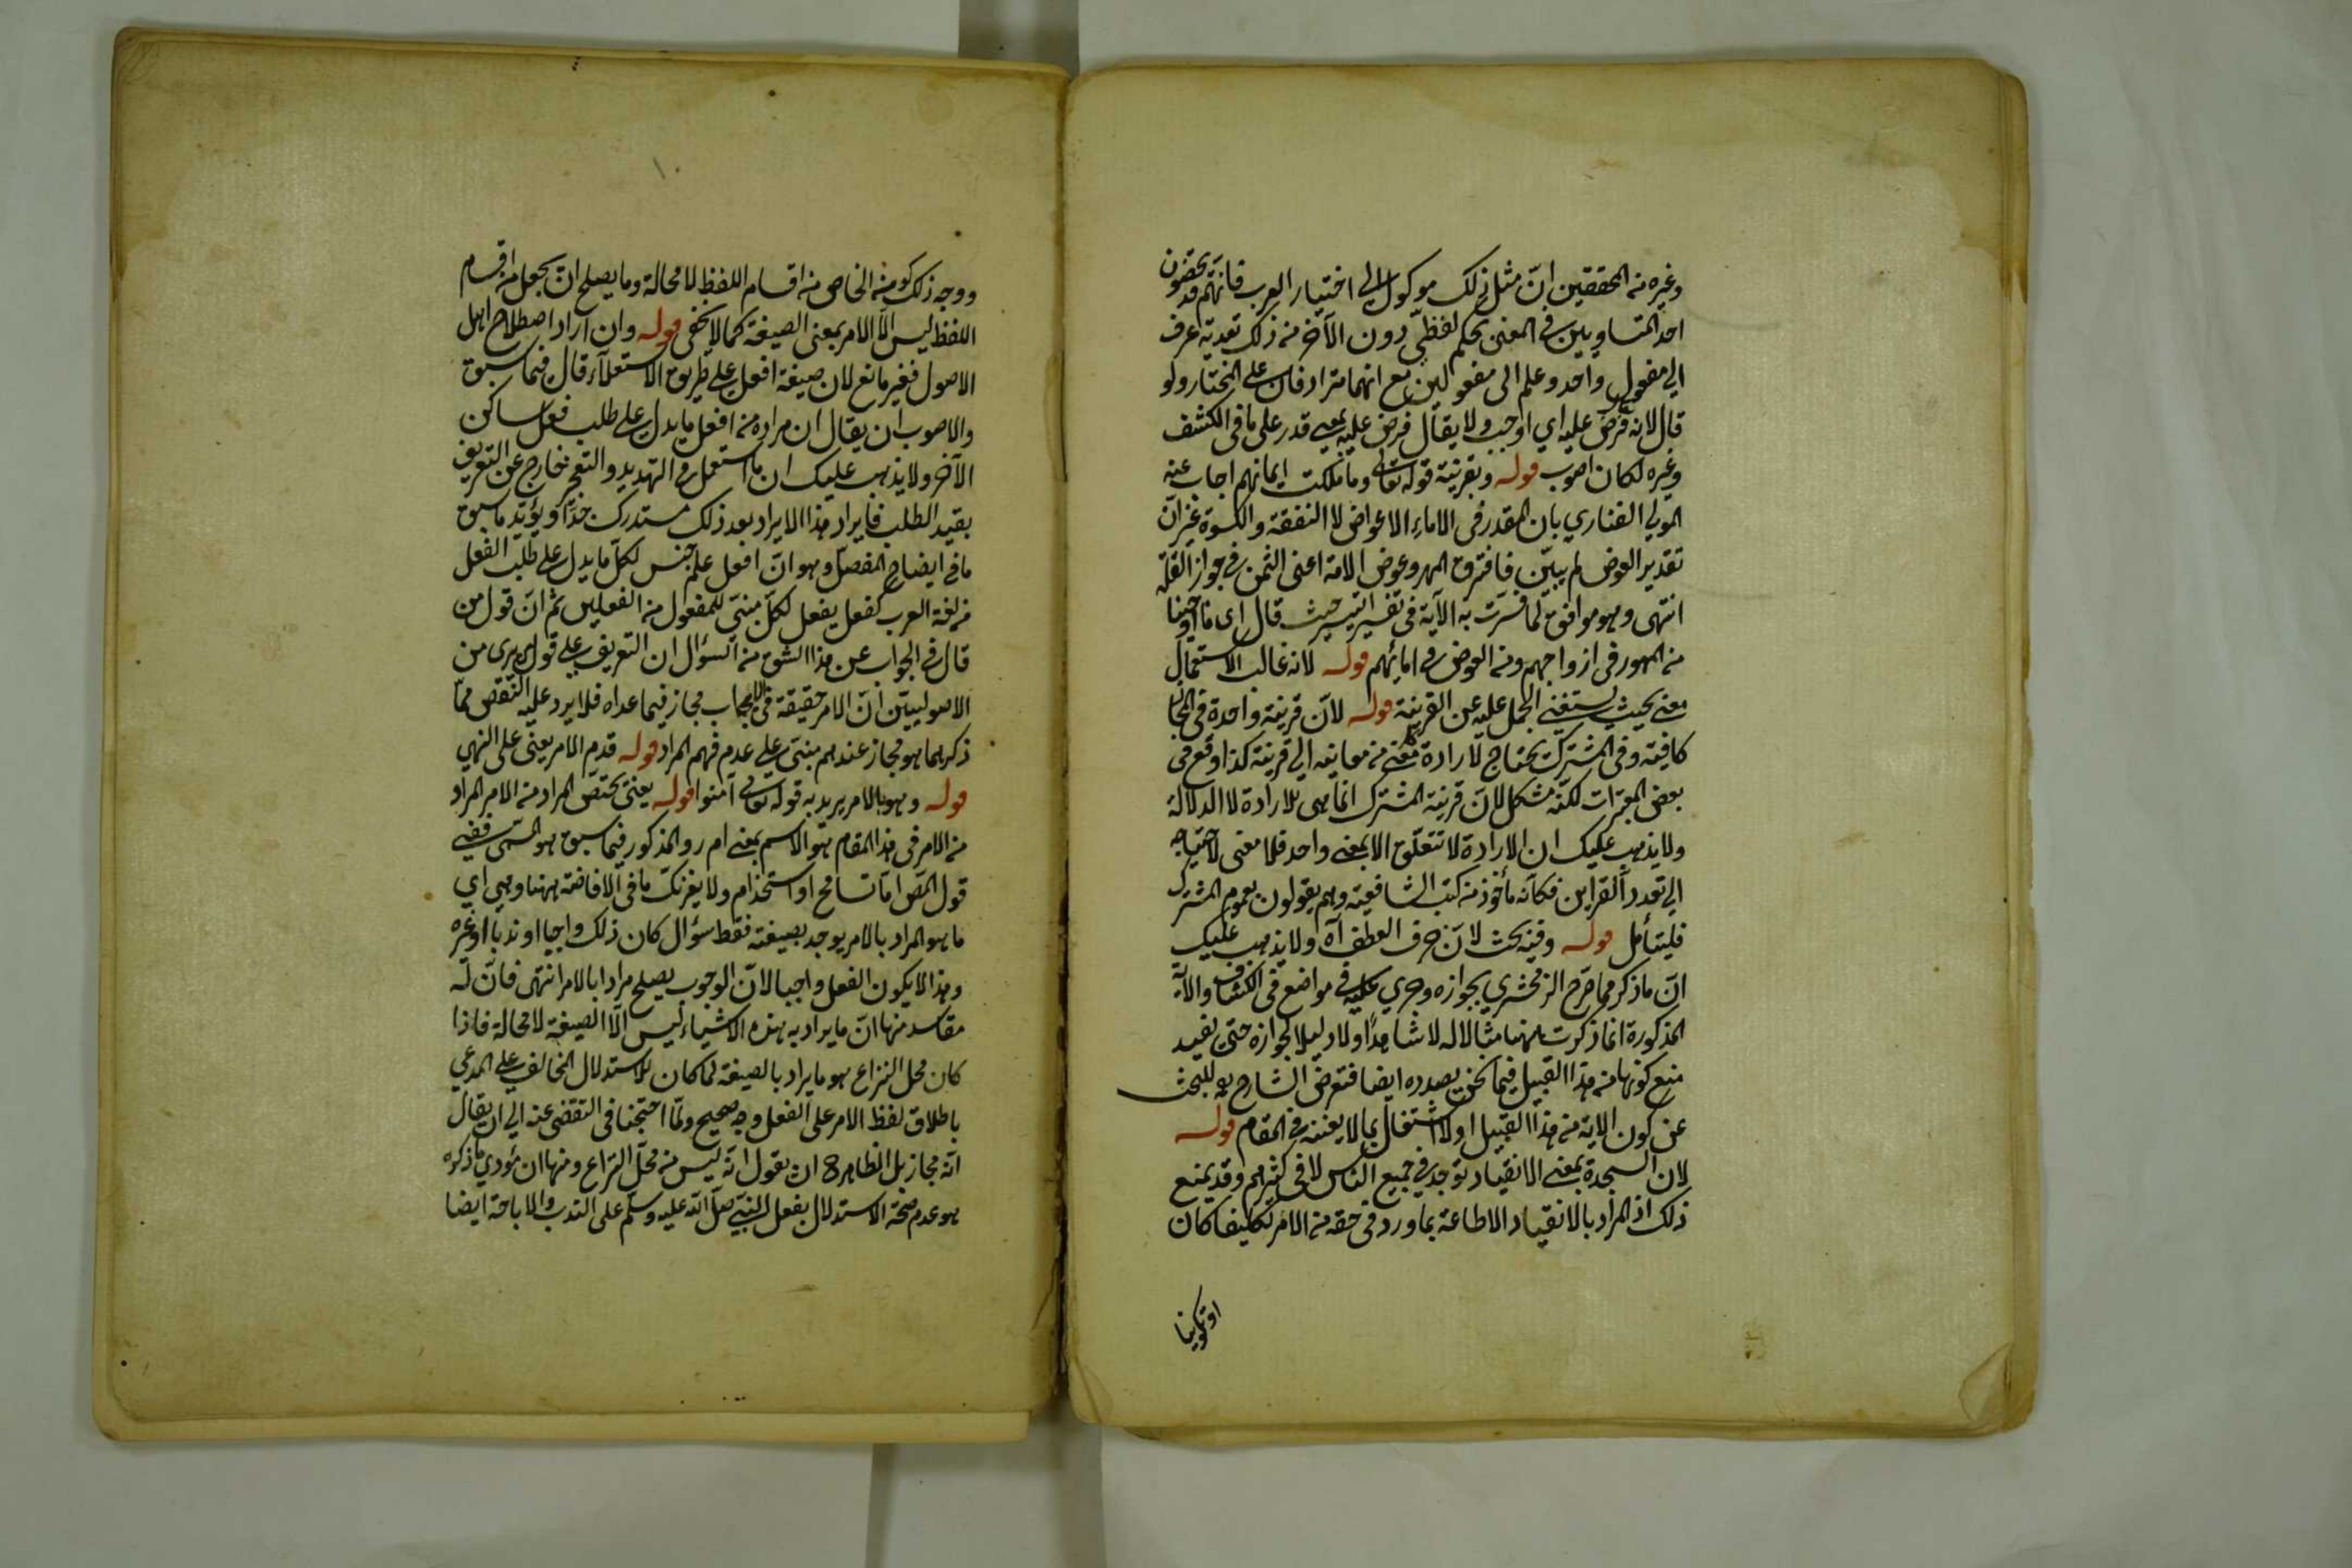 وغيره من المحققين ان مثل ذلك موكول الى اختيار العرب فانهم قد يخصون
احد المتساويين في المعنى بحكم لفظي دون الآخر من ذلك تعدية عرف
الى مفعول واحد وعلم الى مفعولين مع انهما مترادفان على المختار ولو
قال لانه فرض عليه اي اوجب ولا يقال فرض عليه بمعنى قدر على ما في الكشف
وغيره لكان اصوب قوله وبقرينة قوله تعالى وما ملكت ايمانهم اجاب عنه
المولى الفناري بان المقدر في الاماء الاعواض لا النفقة والكسوة غير ان
تقدير العوض لم يبين فافترق المهر وعوض الامة اعني الثمن في جواز القلة
انتهى وهو موافق لما فسرت به الآية في تفسير التيسير حيث قال اى ما اوجبنا
من المهور في ازواجهم ومن العوض في امائهم قوله لانه غالب الاستعمال
معنى بحيث يستغنى الحمل عليه عن القرينة قوله لان قرينة واحدة في المجاز
كافية وفي المشترك يحتاج لارادة كل معنى من معانيه الى قرينة كذا وقع في
بعض المعتبرات لكنه مشكل لان قرينة المشترك انما هي للارادة لا الدلالة
ولا يذهب عليك ان الارادة لا تتعلق الا بمعنى واحد فلا معنى لاحتياجه
الى تعدد القراين فكانه مأخوذ من كتب الشافعية وهم يقولون بعموم المشترك
فليتأمل قوله وفيه بحث لان حرف العطف آه ولا يذهب عليك
ان ما ذكر مما صرح الزمخشري بجوازه وجرى عليه في مواضع في الكشاف والآية
المذكورة انما ذكرت ههنا مثالا له لا شاهدا ولا دليلا لجوازه حتى يفيد
منع كونها من هذا القبيل فيما نحن بصدده ايضا فتعرض الشارح به للبحث
عن كون الاية من هذا القبيل اولا اشتغال بما لا يعنيه في المقام قوله
لان السجدة بمعنى الانقياد توجد في جميع الناس لا في كثيرهم وقد يمنع
ذلك اذ المراد بالانقياد الاطاعة بما ورد في حقه من الامر تكليفا كان
او تكوينا
ووجه ذلك كون الخاص من اقسام اللفظ لا محالة وما يصلح ان يجعل من اقسام
اللفظ ليس الا الامر بمعنى الصيغة كما لا يخفى قوله وان اراد اصطلاح اهل
الاصول فغير مانع لان صيغة افعل على طريق الاستعلاء قال فيما سبق
والاصوب ان يقال ان مراده من افعل ما يدل على طلب فعل ساكن
الآخر ولا يذهب عليك ان ما استعمل في التهديد والتعجيز خارج عن التعريف
بقيد الطلب فايراد هذا الايراد بعد ذلك مستدرك جدا ويؤيد ما سبق
ما في ايضاح المفصل وهو ان افعل علم جنس لكل ما يدل على طلب الفعل
من لغة العرب كفعل يفعل لكل مبني للمفعول من الفعلين ثم ان قول من
قال في الجواب عن هذا الشق من السؤال ان التعريف على قول من يرى من
الاصوليين ان الامر حقيقة في الايجاب مجاز فيما عداه فلا يرد عليه النقض مما
ذكر لما هو مجاز عندهم مبني على عدم فهم المراد قوله قدم الامر يعني على النهي
قوله وهو بالامر يريد به قوله تعالى آمنوا قوله يعني يختص المراد من الامر المراد
من الامر في هذا المقام هو الاسم بمعنى ا م ر والمذكور فيما سبق هو المسمى ففي
قول المص اما تسامح او استخدام ولا يغرنك ما في الافاضة ههنا وهي اي
ما هو المراد بالامر يوجد بصيغته فقط سؤال كان ذلك واجبا او ندبا او غيره
وهذا لا يكون الفعل واجبا لان الوجوب يصلح مرادا بالامر انتهى فان له
مفاسد منها ان ما يراد به بهذه الاشياء ليس الا الصيغة لا محالة فاذا
كان محل النزاع هو ما يراد بالصيغة لما كان للاستدلال المخالف على المدعى
باطلاق لفظ الامر على الفعل وجه صحيح ولما احتجنا في التفصي عنه الى ان يقال
انه مجاز بل الظاهر ح ان يقول انه ليس من محل النزاع ومنها ان مؤدي ما ذكره
هو عدم صحة الاستدلال بفعل النبي صلى الله عليه وسلم على الندب والاباحة ايضا